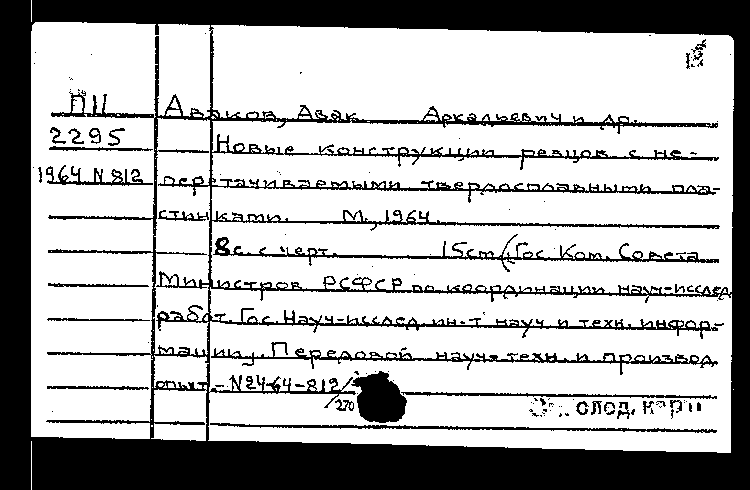 П11 Аваков, Авак Аркадьевич и др.
2295 Новые конструкции резцов с не-
1964 N 812 перетачиваемыми твердосплавными пла-
стинками. М., 1964.
8 с. с черт. 15 cm (Гос. Ком. Совета
Министров РСФСР по координации науч-исслед.
работ. Гос. Науч-исслед. ин-т науч. и техн. инфор-
мации). Передовой науч-техн. и производ.
опыт. - N24-64-812/
/270
след. карт